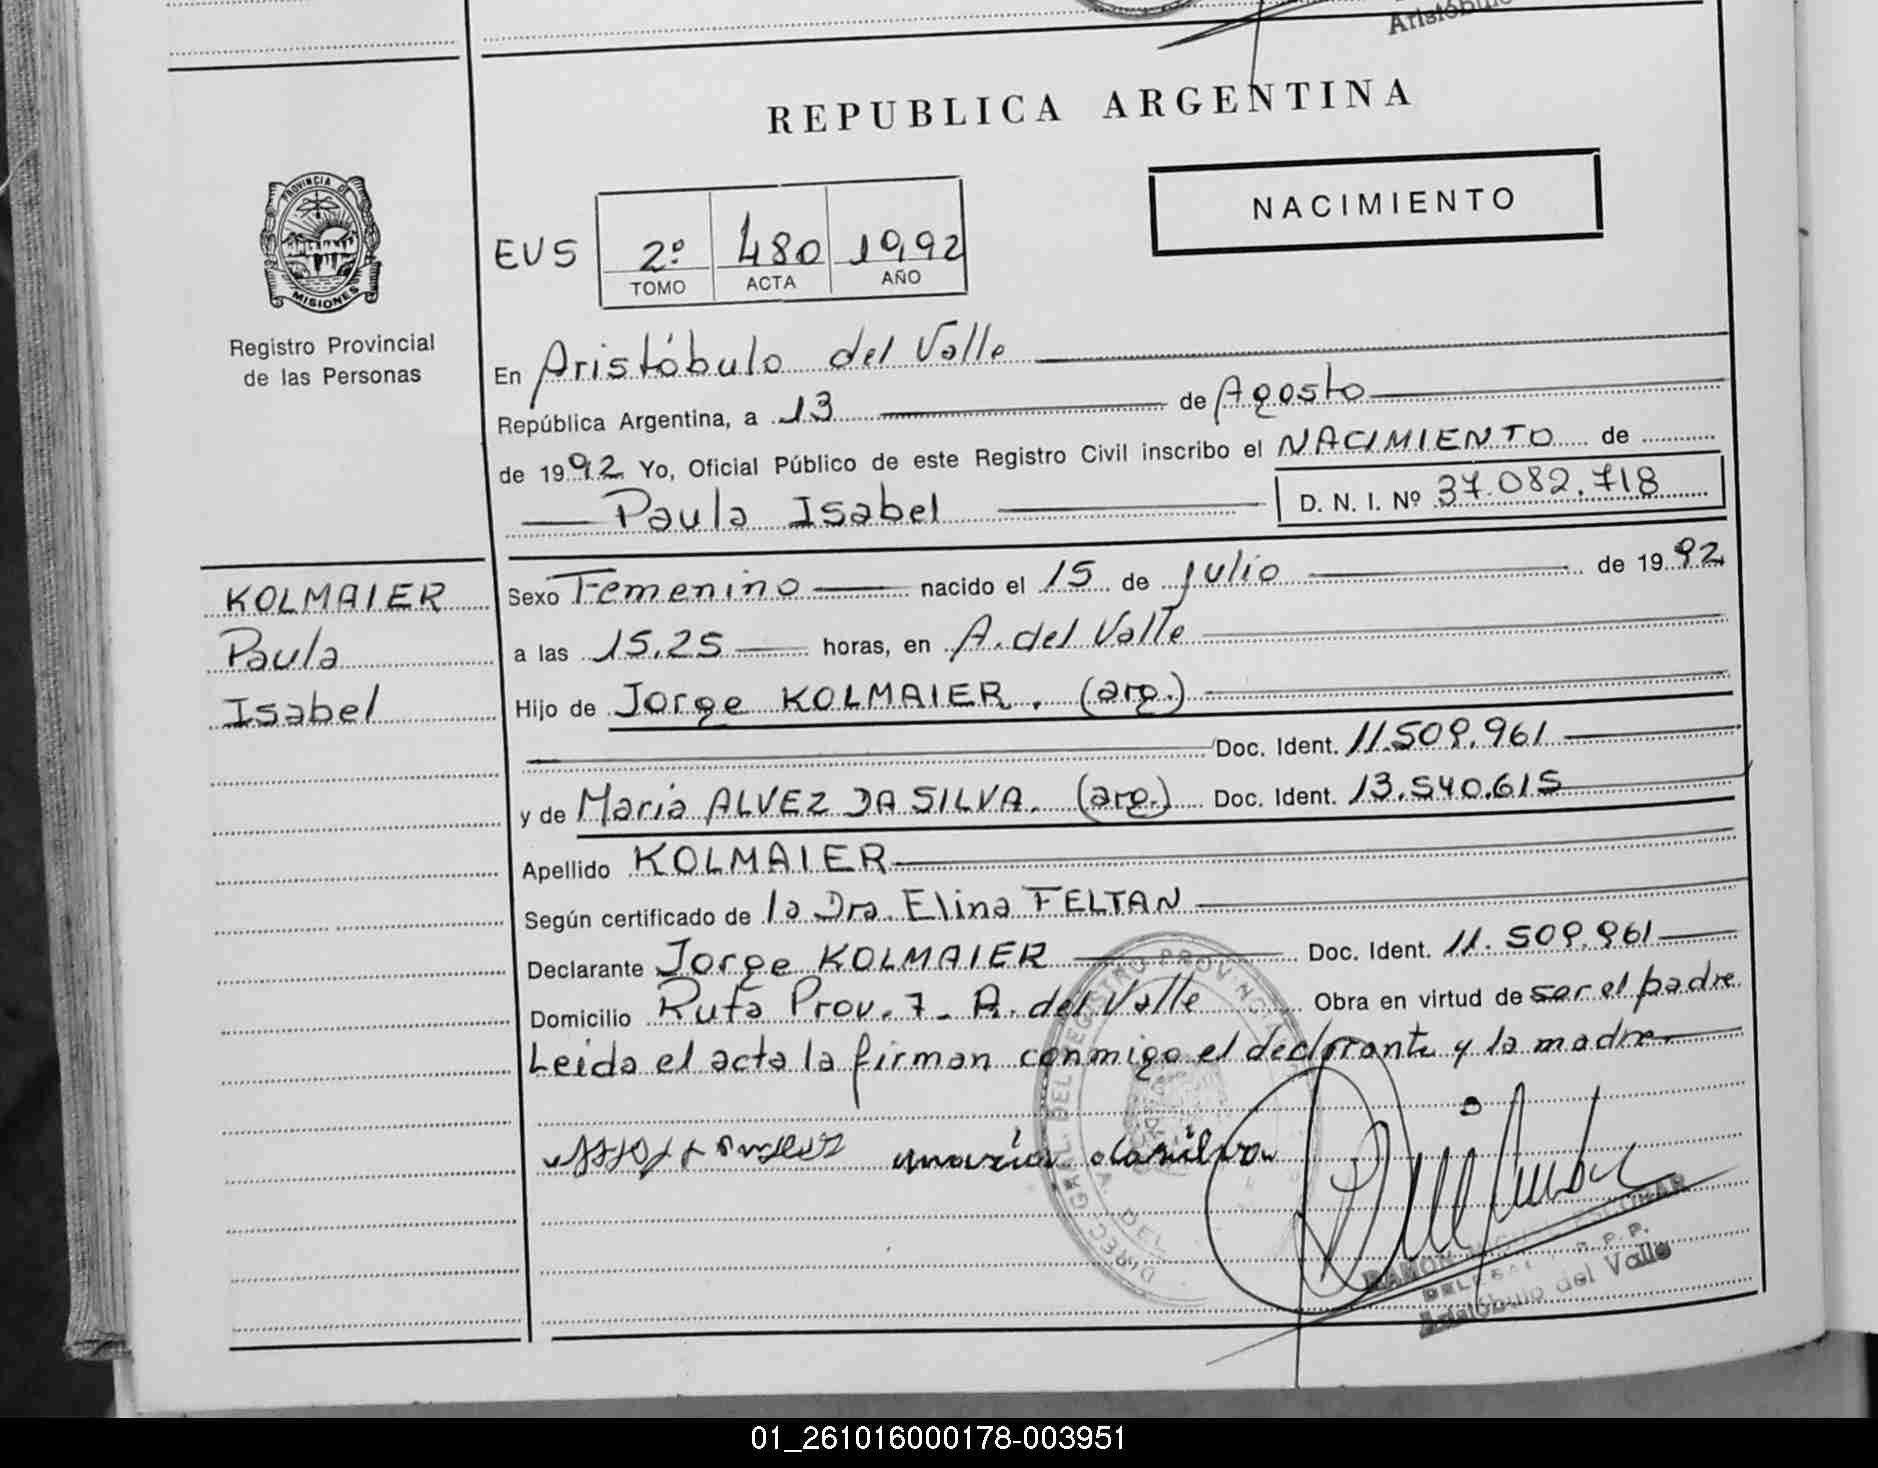 Aristóbulo
REPUBLICA ARGENTINA
PROVINCIA DE
MISIONES
NACIMIENTO
EUS 2º 480 1992
TOMO ACTA AÑO
Registro Provincial
de las Personas
En Aristóbulo del Valle
República Argentina, a 13 de Agosto
de 1992 Yo, Oficial Público de este Registro Civil inscribo el NACIMIENTO de
Paula Isabel D. N. I. Nº 37.082.718
KOLMAIER
Paula
Isabel
Sexo Femenino nacido el 15 de Julio de 1992
a las 15.25 horas, en A. del Valle
Hijo de Jorge KOLMAIER. (arg.)
Doc. Ident. 11.509.961
y de Maria ALVEZ DA SILVA. (arg.) Doc. Ident. 13.540.615
Apellido KOLMAIER
Según certificado de la Dra. Elina FELTAN
Declarante Jorge KOLMAIER Doc. Ident. 11.509.961
Domicilio Ruta Prov. 7 - A. del Valle Obra en virtud de ser el padre
Leida el acta la firman conmigo el declarante y la madre
maria dasilva
DIREC. GRAL. DEL REGISTRO PROVINCIAL
RAMON ESCOBAR
R. P. P.
Aristóbulo del Valle
01_261016000178-003951